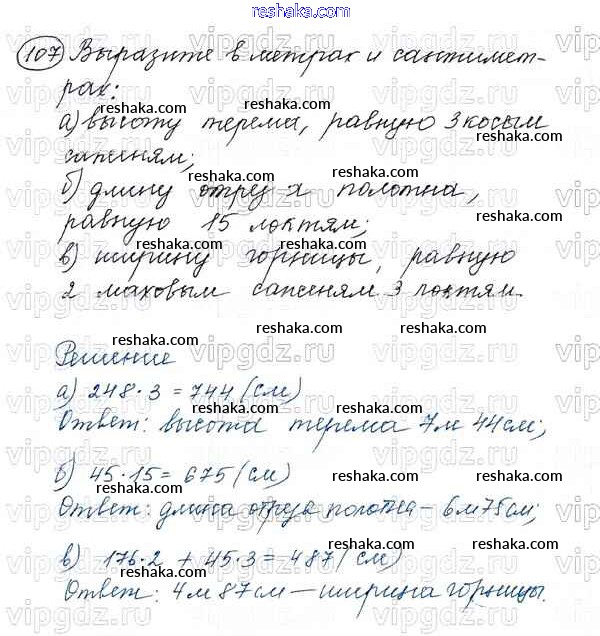 reshaka.com
107 Выразите в метрах и сантимет-
рах:
а) высоту терема, равную 3 косым
саженям;
б) длину отреза полотна,
равную 15 локтям;
в) ширину горницы, равную
2 маховым саженям 3 локтям.
Решение
а) 248·3 = 744 (см)
Ответ: высота терема 7м 44см;
б) 45·15 = 675 (см)
Ответ: длина отреза полотна – 6м75см;
в) 176·2 + 45·3 = 487 (см)
Ответ: 4м 87см – ширина горницы.